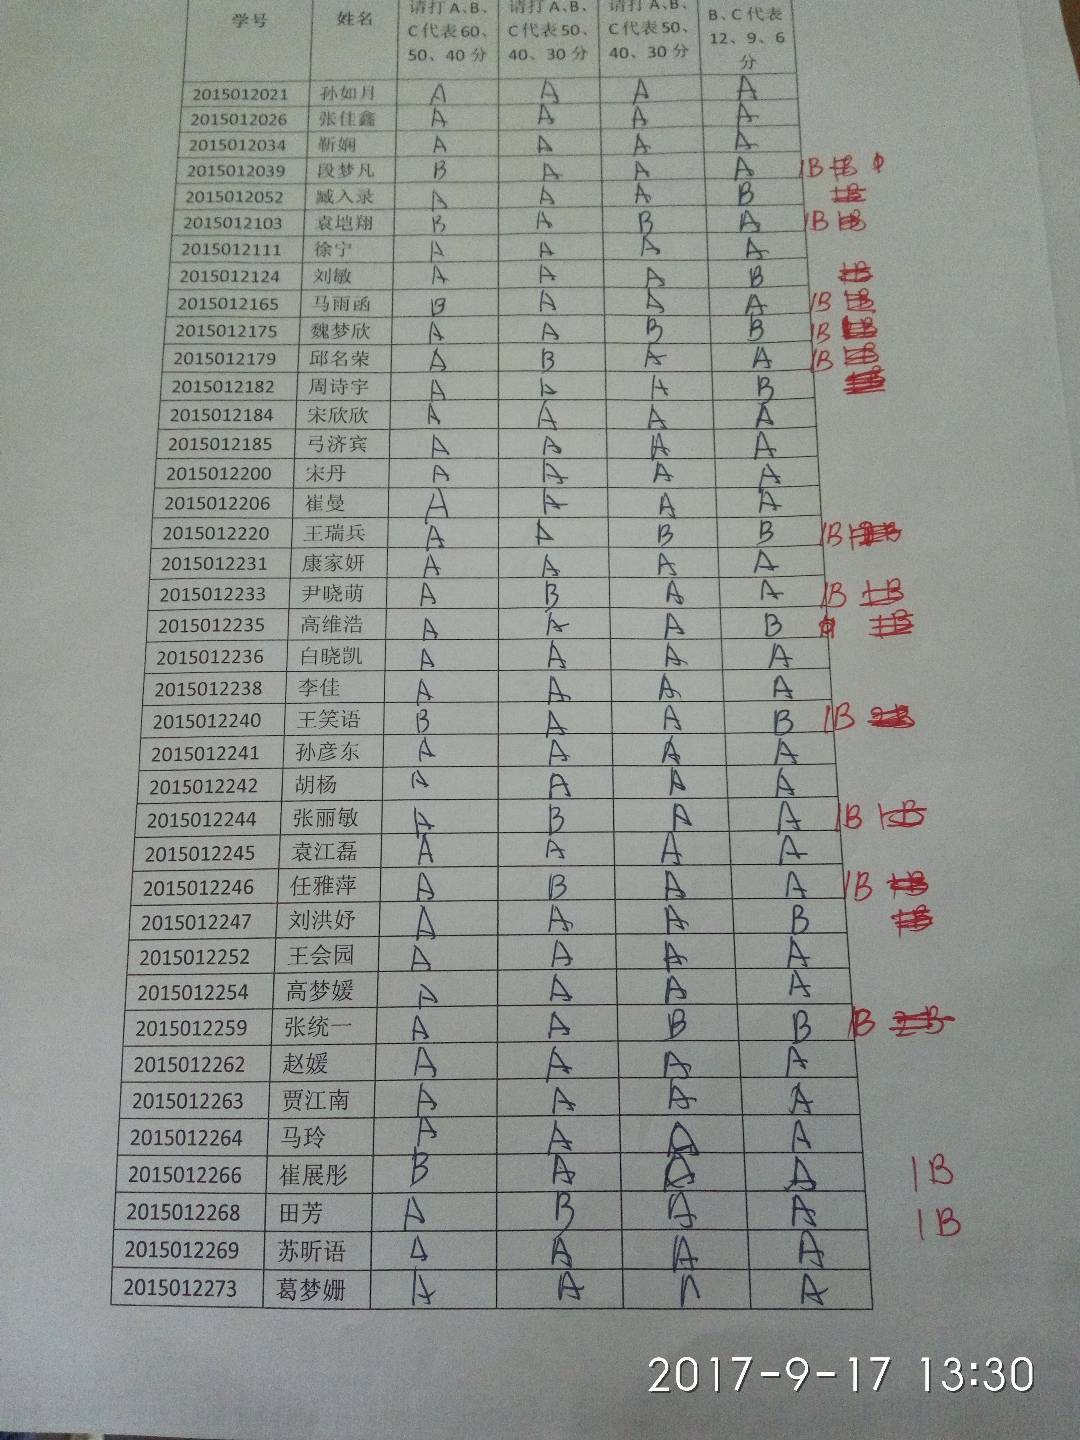 学号 姓名 请打A、B、C代表60、50、40分 请打A、B、C代表50、40、30分 请打A、B、C代表50、40、30分 B、C代表12、9、6分
2015012021 孙如月 A A A A
2015012026 张佳鑫 A A A A
2015012034 靳娴 A A A A
2015012039 段梦凡 B A A A 1B
2015012052 臧入录 A A A B
2015012103 袁垲翔 B A B A 1B
2015012111 徐宁 A A A A
2015012124 刘敏 A A A B
2015012165 马雨函 B A A A 1B
2015012175 魏梦欣 A A B B 1B
2015012179 邱名荣 A B A A 1B
2015012182 周诗宇 A A A B
2015012184 宋欣欣 A A A A
2015012185 弓济宾 A A A A
2015012200 宋丹 A A A A
2015012206 崔曼 A A A A
2015012220 王瑞兵 A A B B 1B
2015012231 康家妍 A A A A
2015012233 尹晓萌 A B A A 1B
2015012235 高维浩 A A A B
2015012236 白晓凯 A A A A
2015012238 李佳 A A A A
2015012240 王笑语 B A A B 1B
2015012241 孙彦东 A A A A
2015012242 胡杨 A A A A
2015012244 张丽敏 A B A A 1B
2015012245 袁江磊 A A A A
2015012246 任雅萍 A B A A 1B
2015012247 刘洪妤 A A A B
2015012252 王会园 A A A A
2015012254 高梦媛 A A A A
2015012259 张统一 A A B B 1B
2015012262 赵媛 A A A A
2015012263 贾江南 A A A A
2015012264 马玲 A A A A
2015012266 崔展彤 B A A A 1B
2015012268 田芳 A B A A 1B
2015012269 苏昕语 A A A A
2015012273 葛梦姗 A A A A
2017-9-17 13:30